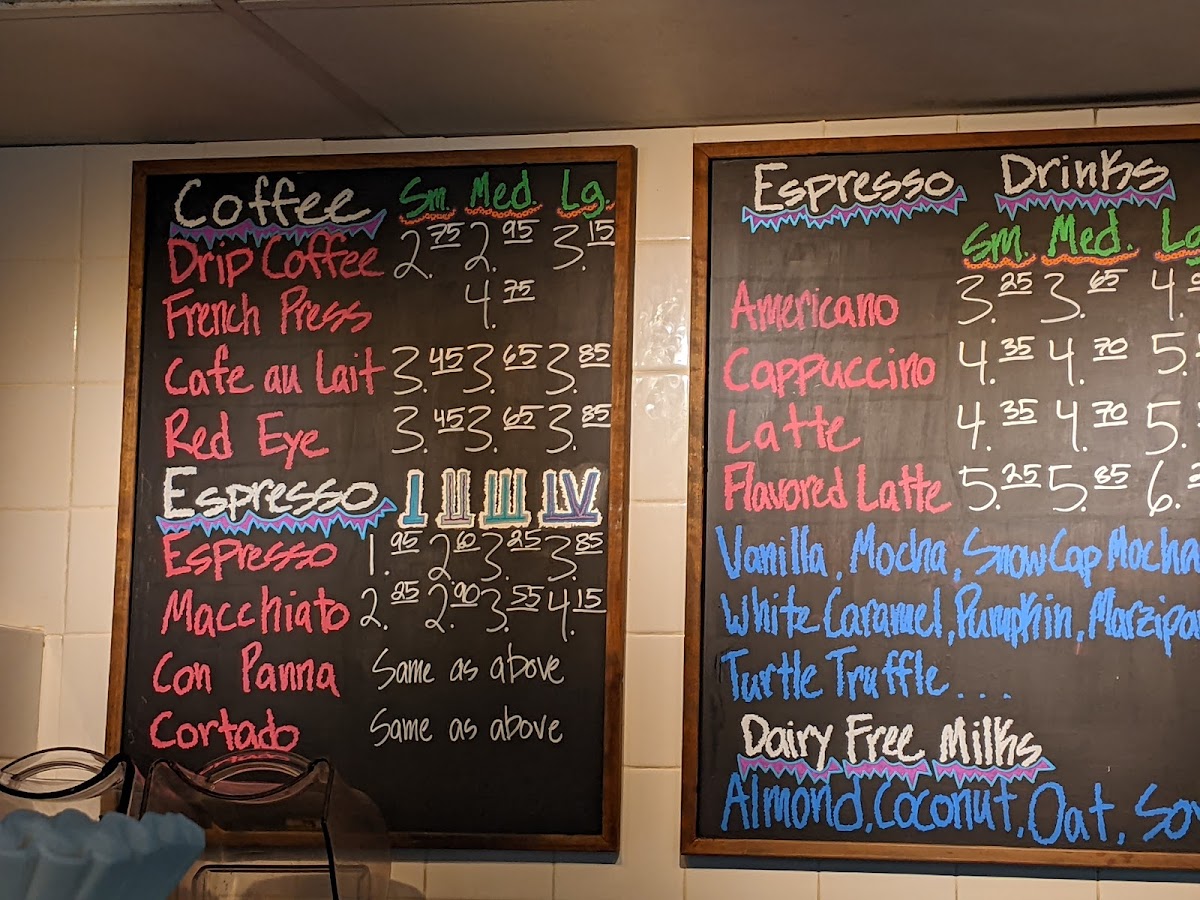 Coffee Sm. Med. Lg.
Drip Coffee 2.75 2.95 3.15
French Press 4.75
Cafe au Lait 3.45 3.65 3.85
Red Eye 3.45 3.65 3.85
Espresso I II III IV
Espresso 1.95 2.60 3.25 3.85
Macchiato 2.25 2.90 3.55 4.15
Con Panna Same as above
Cortado Same as above
Espresso Drinks
Sm. Med. Lg
Americano 3.25 3.65 4.
Cappuccino 4.35 4.70 5.
Latte 4.35 4.70 5.
Flavored Latte 5.25 5.85 6.
Vanilla, Mocha, SnowCap Mocha
White Caramel, Pumpkin, Marzipa
Turtle Truffle...
Dairy Free Milks
Almond, Coconut, Oat, So